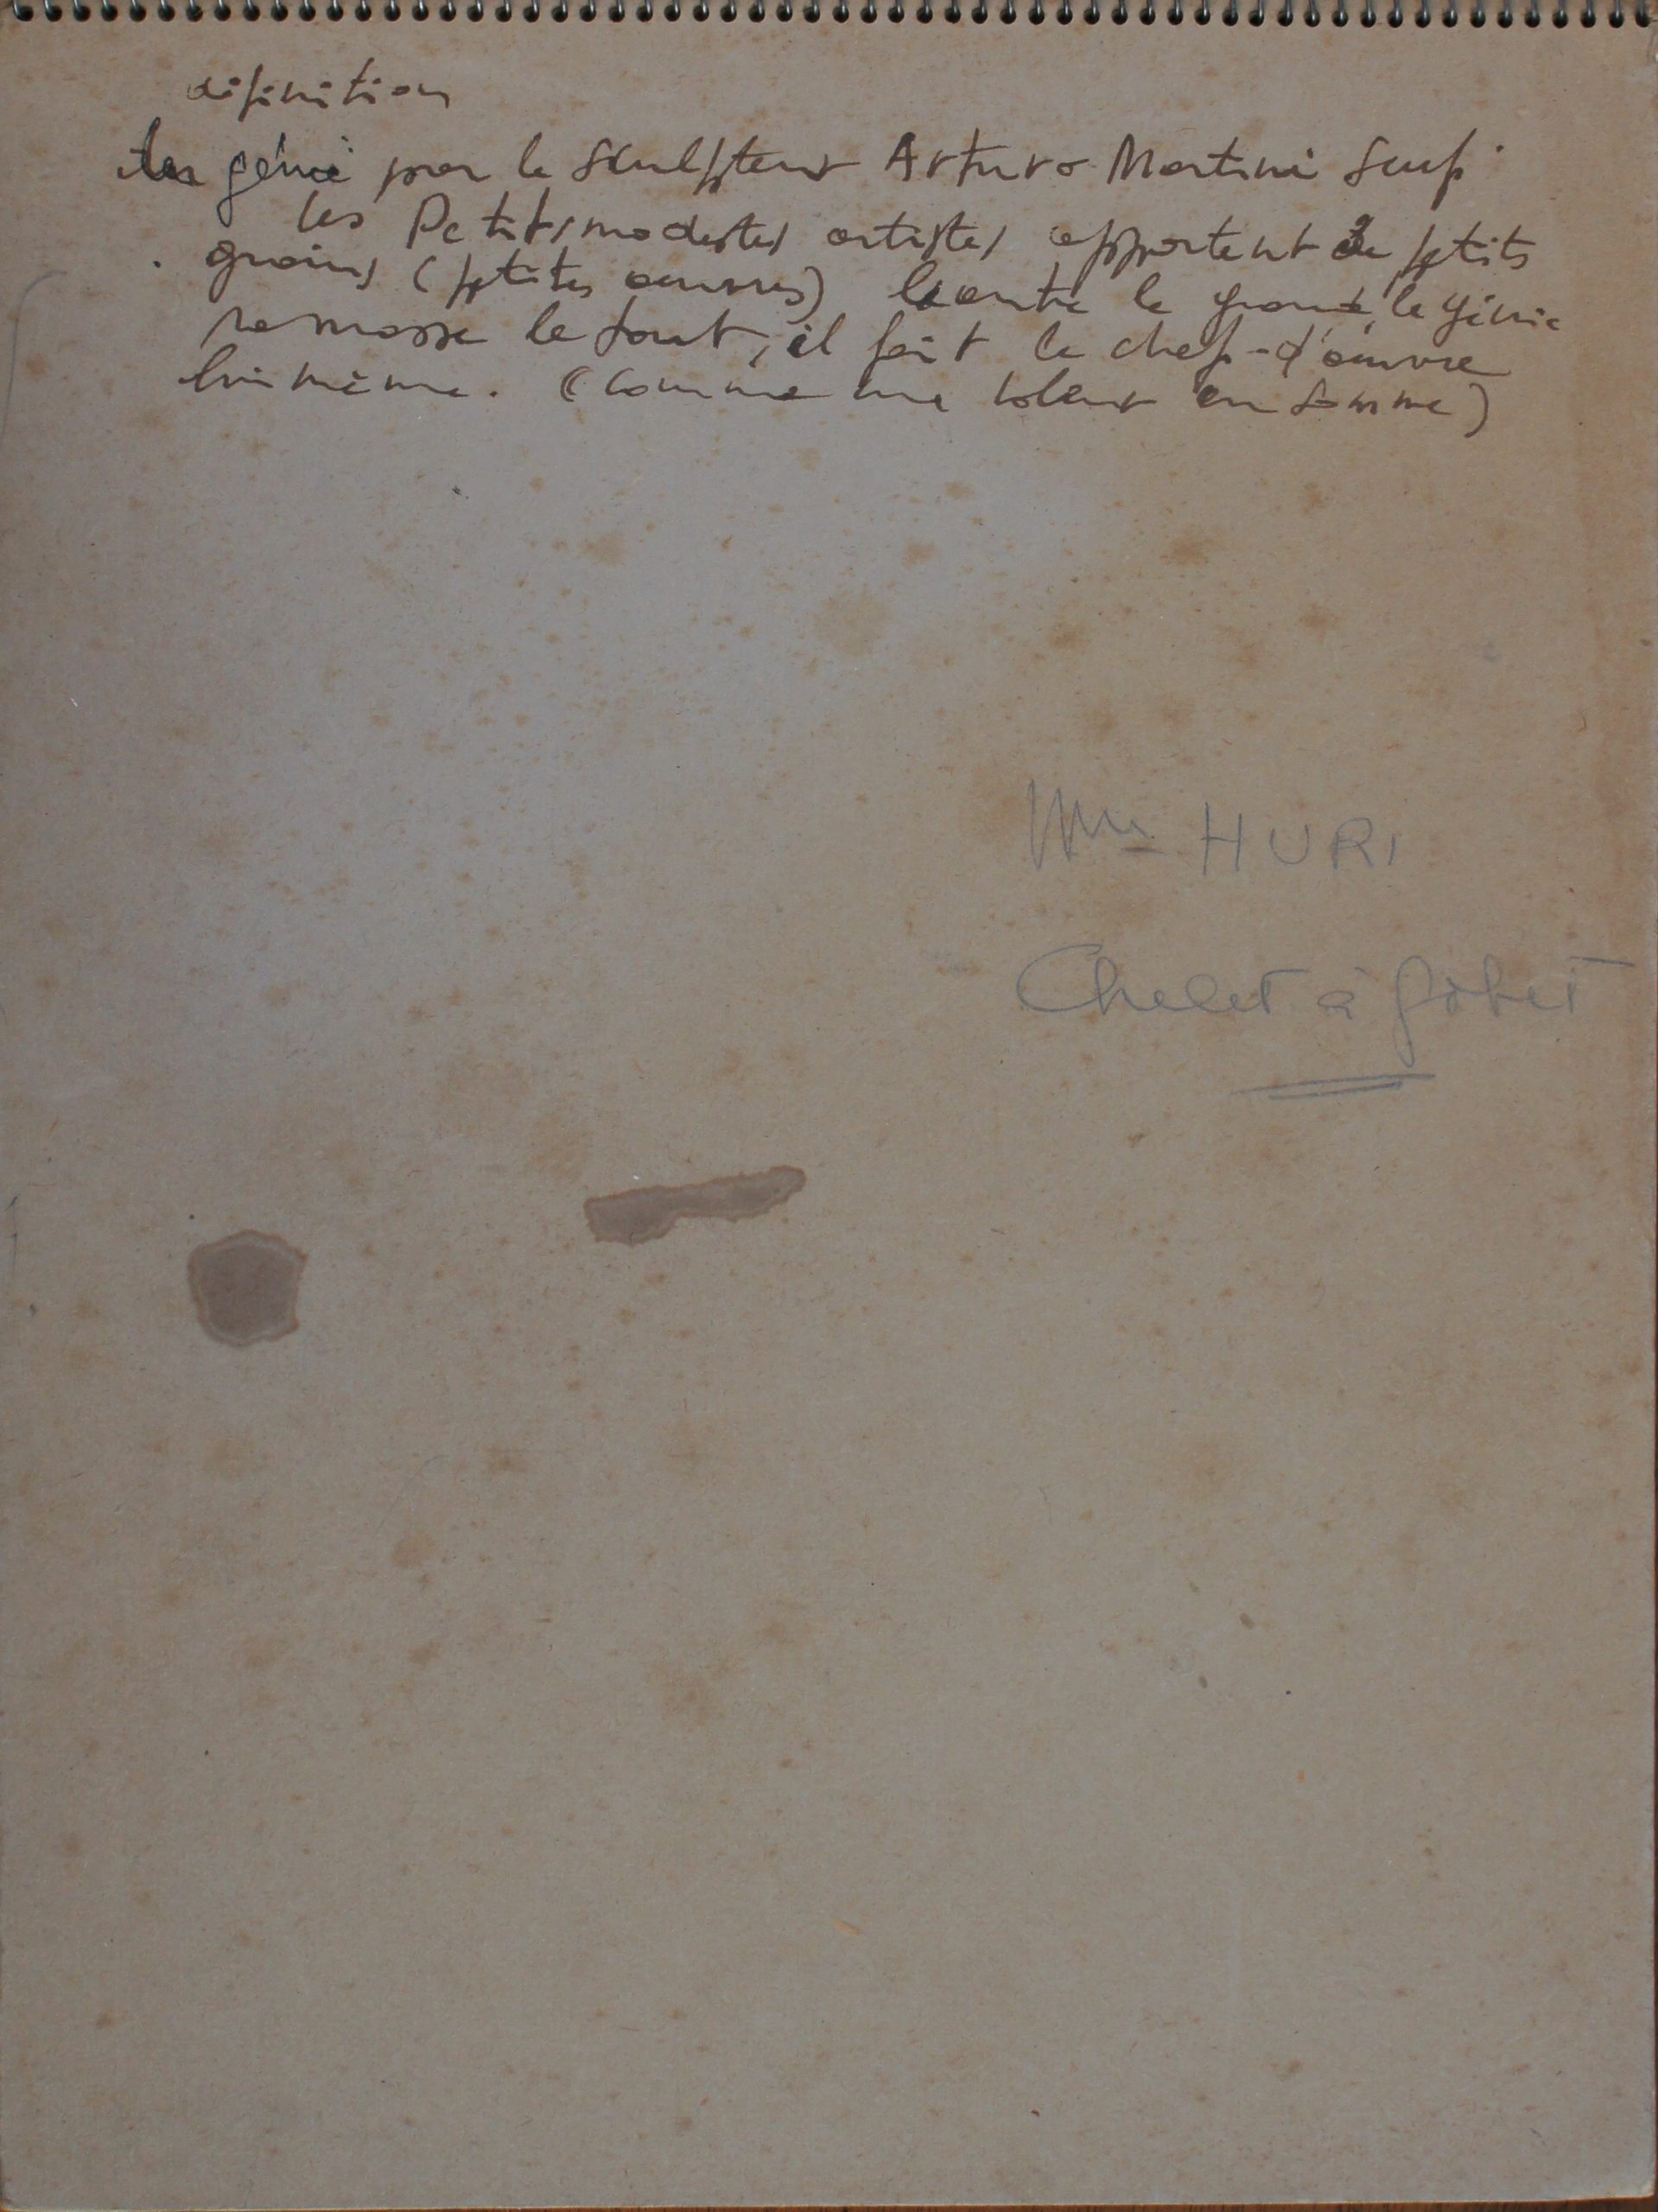 définition
du génie par le sculpteur Arturo Martini sculp.
les Petits modestes artistes apportent de petits
grains (petites œuvres) le grand, le génie
ramasse le tout, il fait le chef-d'œuvre
lui même. (comme un voleur en somme)
Mme HURI
Chalet à Gobet